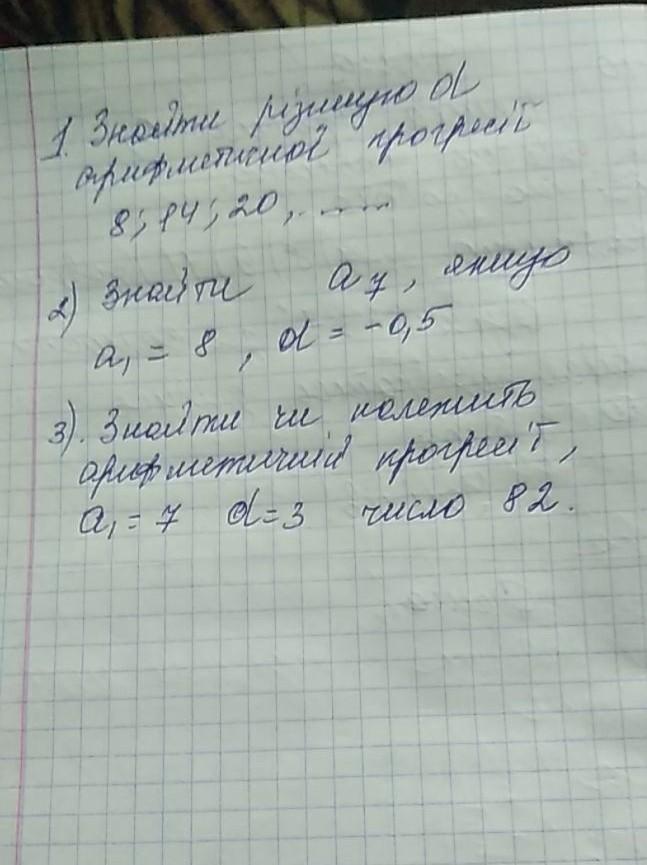 1. Знайти різницю d
арифметичної прогресії
8; 14; 20, ......
2) Знайти a₇, якщо
a₁ = 8, d = -0,5
3). Знайти чи належить
арифметичній прогресії,
a₁ = 7 d = 3 число 82.